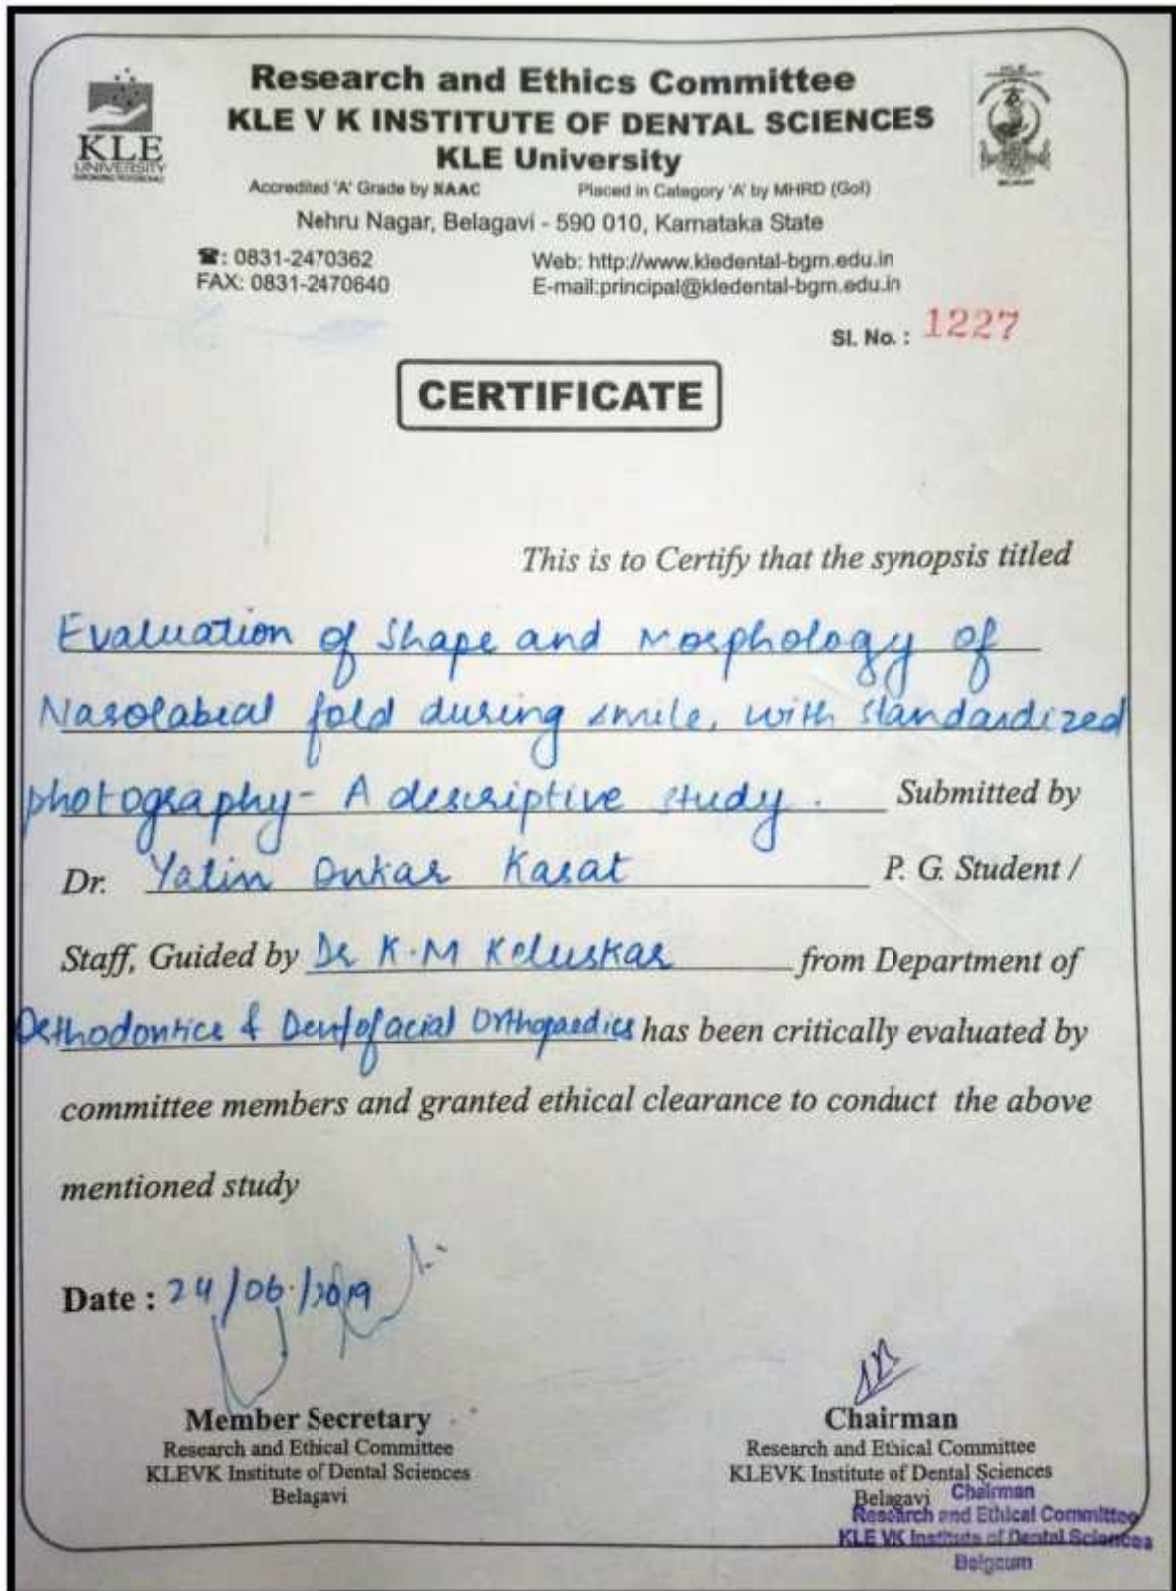 Research and Ethics Committee
KLE V K INSTITUTE OF DENTAL SCIENCES
KLE University
KLE
UNIVERSITY
Accredited 'A' Grade by NAAC Placed in Category 'A' by MHRD (GoI)
Nehru Nagar, Belagavi - 590 010, Karnataka State
☎: 0831-2470362 Web: http://www.kledental-bgm.edu.in
FAX: 0831-2470640 E-mail:principal@kledental-bgm.edu.in
Sl. No. : 1227
CERTIFICATE
This is to Certify that the synopsis titled
Evaluation of Shape and Morphology of
Nasolabial fold during smile, with standardized
photography - A descriptive study. Submitted by
Dr. Yatin Onkar Kasat P. G. Student /
Staff, Guided by Dr K.M Keluskar from Department of
Orthodontics & Dentofacial Orthopaedics has been critically evaluated by
committee members and granted ethical clearance to conduct the above
mentioned study
Date : 24/06/2019
Member Secretary
Research and Ethical Committee
KLEVK Institute of Dental Sciences
Belagavi
Chairman
Research and Ethical Committee
KLEVK Institute of Dental Sciences
Belagavi
Chairman
Research and Ethical Committee
KLE VK Institute of Dental Sciences
Belgaum